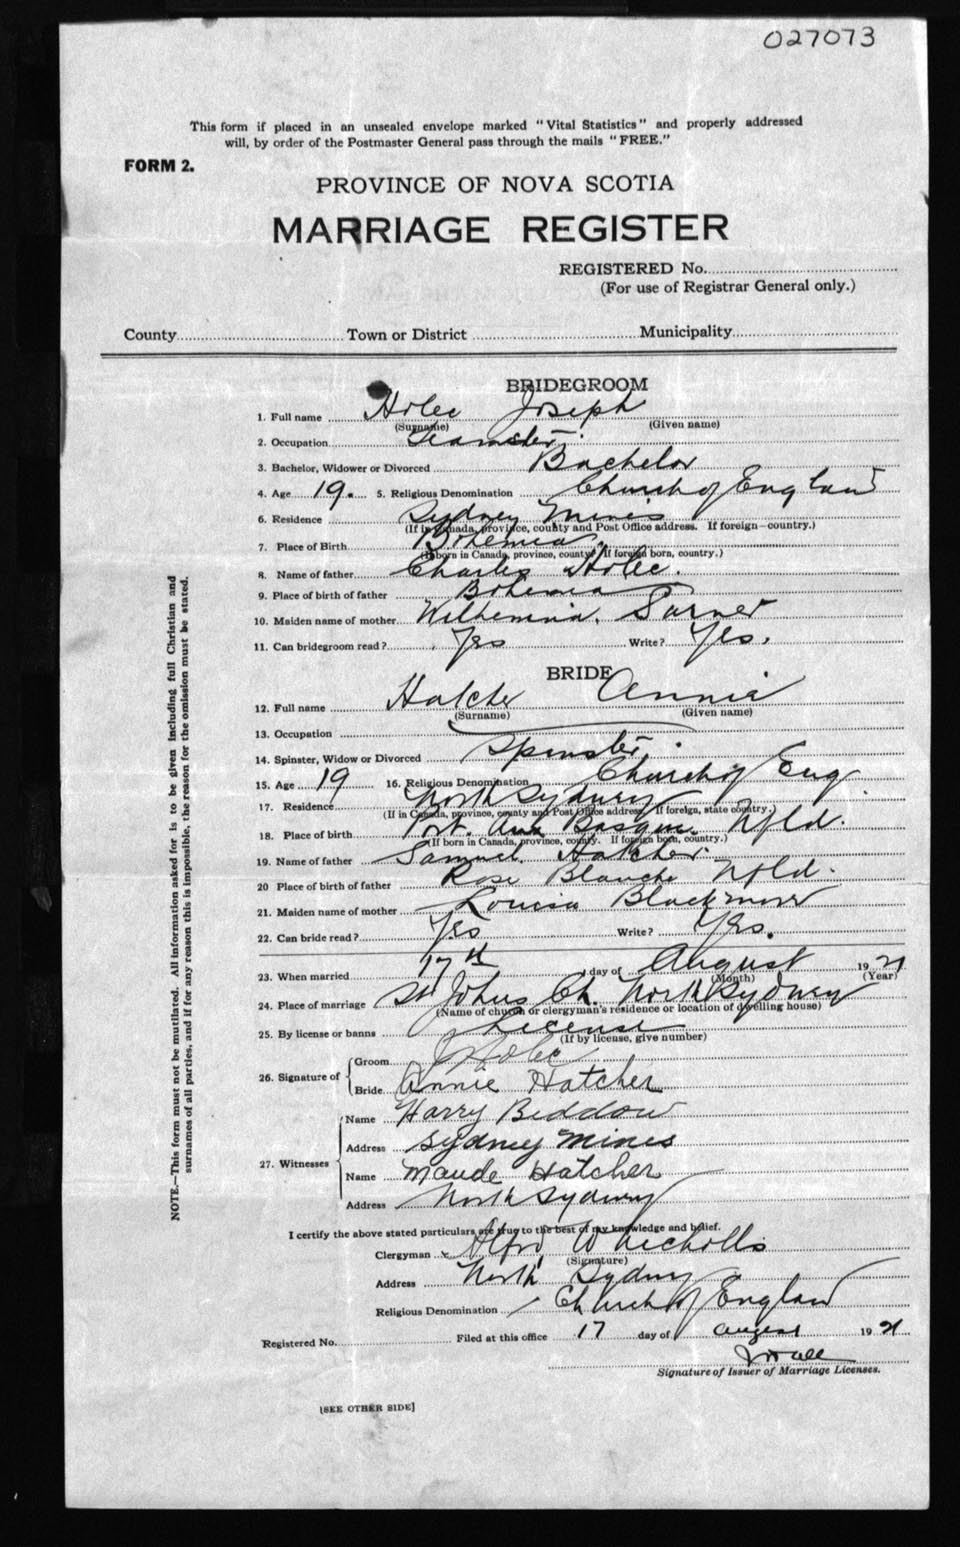 027073
This form if placed in an unsealed envelope marked "Vital Statistics" and properly addressed
will, by order of the Postmaster General pass through the mails "FREE."
FORM 2.
PROVINCE OF NOVA SCOTIA
MARRIAGE REGISTER
REGISTERED No.
(For use of Registrar General only.)
County Town or District Municipality
BRIDEGROOM
1. Full name Holec Joseph
(Surname) (Given name)
2. Occupation Teamster.
3. Bachelor, Widower or Divorced Bachelor
4. Age 19. 5. Religious Denomination Church of England
6. Residence Sydney Mines
(If in Canada, province, county and Post Office address. If foreign—country.)
7. Place of Birth Bohemia
(If born in Canada, province, county. If foreign born, country.)
8. Name of father Charles Holec.
9. Place of birth of father Bohemia
10. Maiden name of mother Wilhemina. Sarner
11. Can bridegroom read? Yes Write? Yes.
BRIDE
12. Full name Hatcher Annie
(Surname) (Given name)
13. Occupation
14. Spinster, Widow or Divorced Spinster.
15. Age 19 16. Religious Denomination Church of Eng.
17. Residence North Sydney
(If in Canada, province, county and Post Office address. If foreign, state country.)
18. Place of birth Port. Aux Basque. Nfld.
(If born in Canada, province, county. If foreign born, country.)
19. Name of father Samuel. Hatcher.
20 Place of birth of father Rose Blanche Nfld.
21. Maiden name of mother Louisa Blackmore
22. Can bride read? Yes Write? Yes.
23. When married 17th day of August 1921
(Month) (Year)
24. Place of marriage St Johns Ch. North Sydney
(Name of church or clergyman's residence or location of dwelling house)
25. By license or banns License
(If by license, give number)
26. Signature of Groom J Holec
Bride Annie Hatcher
27. Witnesses Name Harry Beddow
Address Sydney Mines
Name Maude Hatcher
Address North Sydney
I certify the above stated particulars are true to the best of my knowledge and belief.
Clergyman W Nicholls
(Signature)
Address North Sydney
Religious Denomination Church of England
Registered No. Filed at this office 17 day of August 1921
Signature of Issuer of Marriage Licenses.
[SEE OTHER SIDE]
NOTE.—This form must not be mutilated. All information asked for is to be given including full Christian and
surnames of all parties, and if for any reason this is impossible, the reason for the omission must be stated.